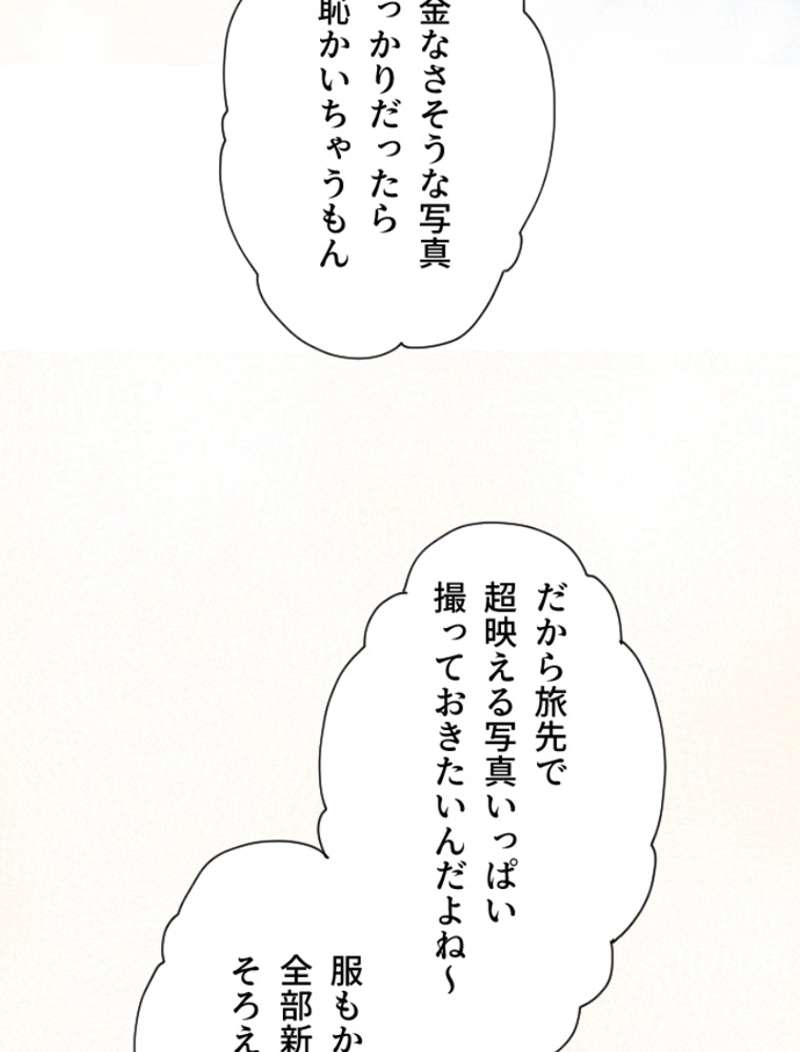 金なさそうな写真
っかりだったら
恥かいちゃうもん
だから旅先で
超映える写真いっぱい
撮っておきたいんだよね～
服もか
全部新
そろえ